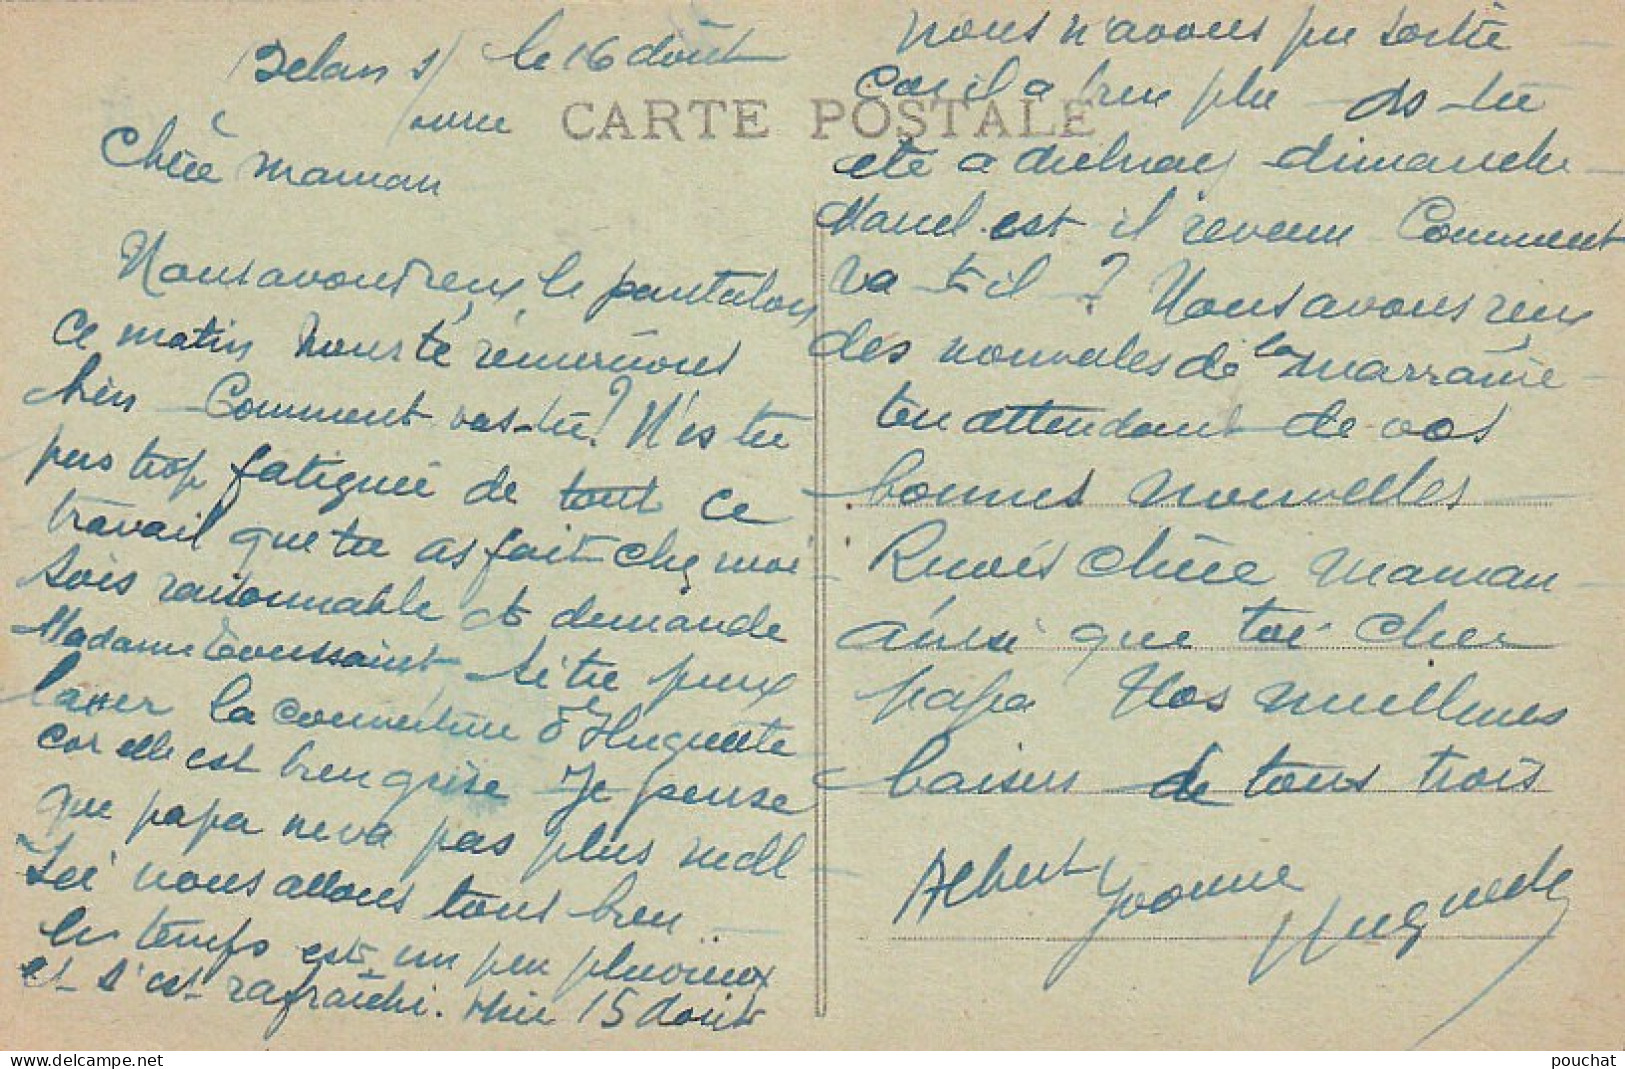 Belan s/ le 16 août
CARTE POSTALE
Chère maman
Nous avons reçu le pantalon
ce matin nous te remercions
bien Comment vas-tu? N'es tu
pas trop fatiguée de tout ce
travail que tu as fait chez moi
Sois raisonnable et demande
Madame Toussaint si tu peux
laver la couverture d'Huguette
car elle est bien grise Je pense
que papa ne va pas plus mal
Ici nous allons tous bien
le temps est un peu pluvieux
et s'est rafraichi. Hier 15 août
nous n'avons pu sortir
Car il a bien plu As-tu
été a Aulnay dimanche
Marcel est il revenu Comment
va t-il ? Nous avons reçu
des nouvelles de la marraine
En attendant de vos
bonnes nouvelles
Reçois chère maman
ainsi que toi cher
papa Nos meilleurs
baisers de tous trois
Albert Yvonne Huguette
pouchat